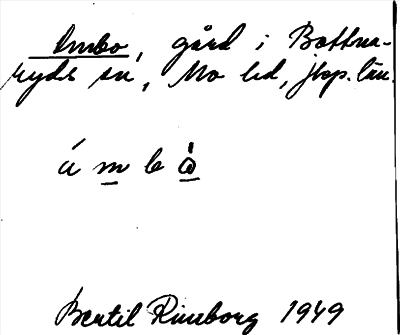 Ambo, gård i Bottna-
ryds sn, Mo hd, Jkp. län.
á m b ò
Bertil Rimborg 1949